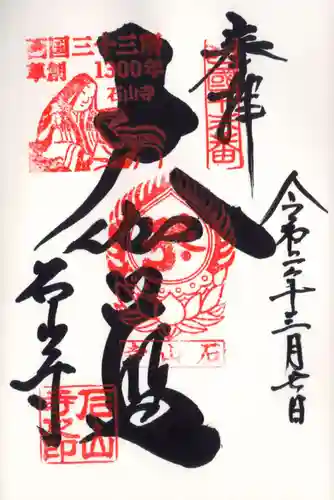 奉拝
西国十三番
令和二年三月七日
大伽藍
西国三十三所
草創1300年
石山寺
石山寺
石山寺
石山寺之印